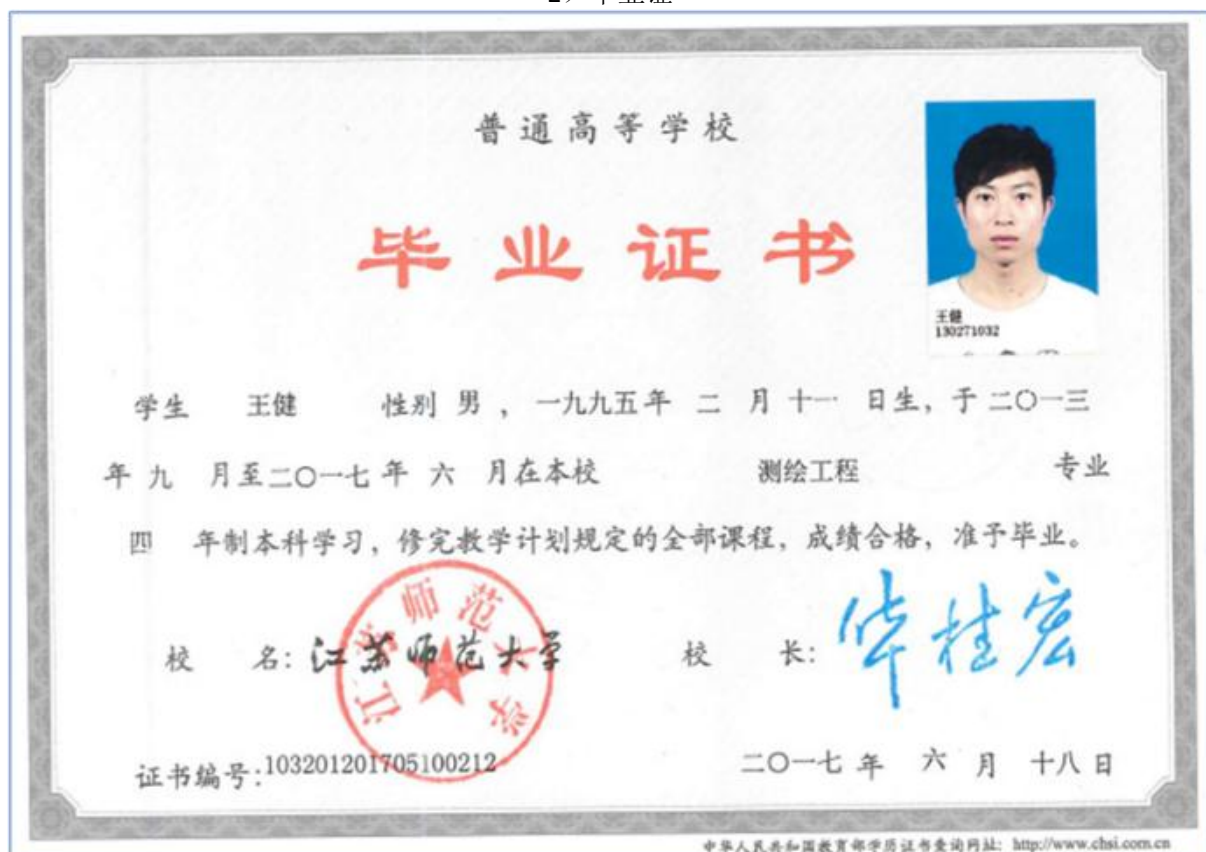 2、毕业证
普通高等学校
毕业证书
王健
130271032
学生 王健 性别 男 ，一九九五年 二 月 十一 日生，于 二〇一三
年 九 月至二〇一七 年 六 月在本校 测绘工程 专业
四 年制本科学习，修完教学计划规定的全部课程，成绩合格，准予毕业。
江苏师范大学
校 名：江苏师范大学 校 长：华桂宏
证书编号：103201201705100212 二〇一七 年 六 月 十八 日
中华人民共和国教育部学历证书查询网址：http://www.chsi.com.cn